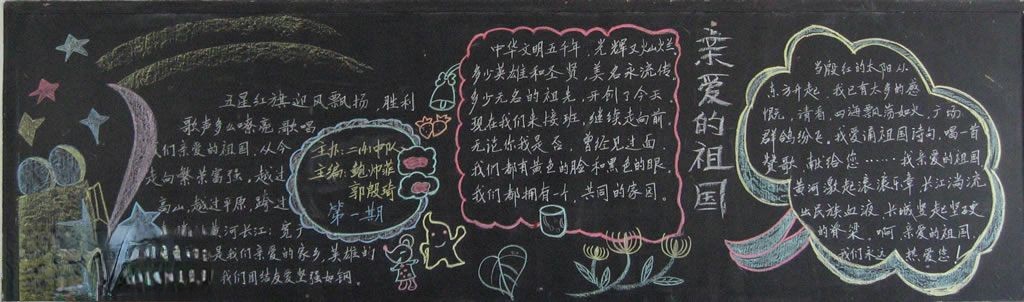 五星红旗迎风飘扬，胜利
歌声多么嘹亮，歌唱
我们亲爱的祖国，从今
走向繁荣富强。越过
高山，越过平原，跨过
黄河长江；宽广
是我们亲爱的家乡，英雄的
我们团结友爱坚强如钢
主办：二小中队
主编：鲍帅菲
郭殷琦
第一期
中华文明五千年，光辉又灿烂。
多少英雄和圣贤，美名永流传。
多少无名的祖先，开创了今天。
现在我们来接班，继续走向前。
无论你我是否，曾经见过面
我们都有黄色的脸和黑色的眼。
我们都拥有一个，共同的家园。
亲爱的祖国
当殷红的太阳从
东方升起，我已有太多的感
慨，请看，四海飘荡如火，广场
群鸽纷飞。我爱诵祖国诗句，唱一首
赞歌，献给您……我亲爱的祖国
黄河激起滚滚乐章，长江淌流
出民族血液，长城竖起坚硬
的脊梁，啊，亲爱的祖国，
我们永远热爱您！